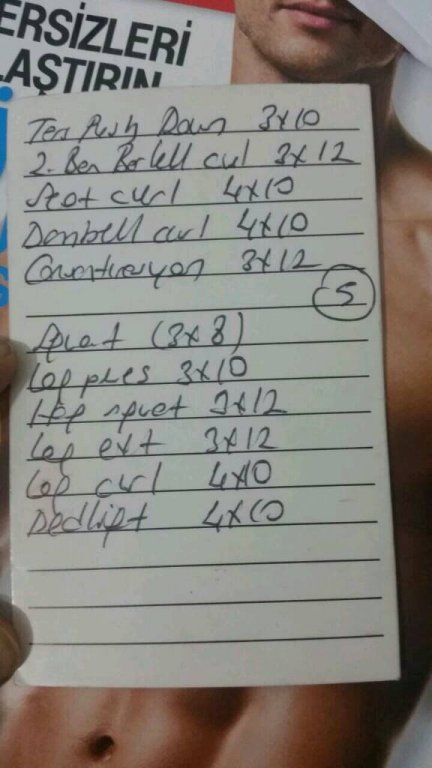 ERSİZLERİ
AŞTIRIN
Ters Push Down 3x10
2. Ben Barbell curl 3x12
Scot curl 4x10
Dombell curl 4x10
Consantrasyon 3x12
5
Squat (3x8)
Leg pres 3x10
Hep squet 3x12
Leg ext 3x12
Leg curl 4x10
Dedlift 4x10